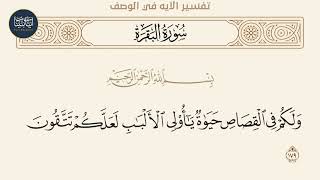 تفسير الآيه في الوصف
سُورَةُ البَقَرَةِ
بِسْمِ اللَّهِ الرَّحْمَٰنِ الرَّحِيمِ
وَلَكُمْ فِي الْقِصَاصِ حَيَوٰةٌ يَٰٓأُو۟لِي الْأَلْبَٰبِ لَعَلَّكُمْ تَتَّقُونَ
١٧٩